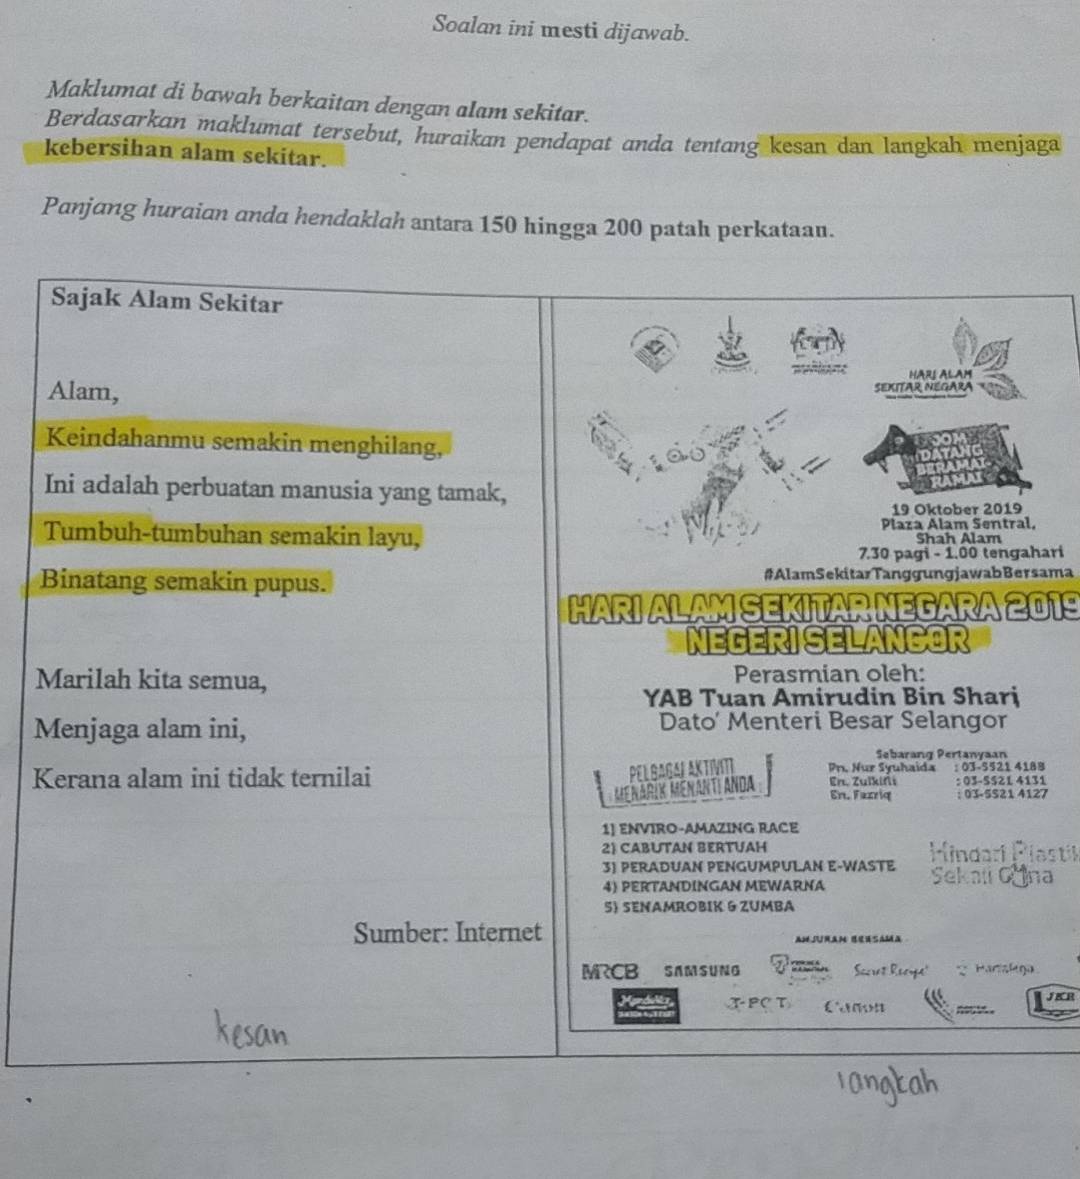 Soalan ini mesti dijawab.
Maklumat di bawah berkaitan dengan alam sekitar.
Berdasarkan maklumat tersebut, huraikan pendapat anda tentang kesan dan langkah menjaga
kebersihan alam sekitar.
Panjang huraian anda hendaklah antara 150 hingga 200 patah perkataan.
Sajak Alam Sekitar
Alam,
Keindahanmu semakin menghilang,
Ini adalah perbuatan manusia yang tamak,
Tumbuh-tumbuhan semakin layu,
Binatang semakin pupus.
Marilah kita semua,
Menjaga alam ini,
Kerana alam ini tidak ternilai
Sumber: Internet
kesan
HARI ALAM
SEKITAR NEGARA
JOM
DATANG
BERAMAI
RAMAI
19 Oktober 2019
Plaza Alam Sentral,
Shah Alam
7.30 pagi - 1.00 tengahari
#AlamSekitarTanggungjawabBersama
HARI ALAM SEKITAR NEGARA 2019
NEGERI SELANGOR
Perasmian oleh:
YAB Tuan Amirudin Bin Shari
Dato' Menteri Besar Selangor
PELBAGAI AKTIVITI
MENARIK MENANTI ANDA
Sebarang Pertanyaan
Pn. Nur Syuhaida : 03-5521 4188
En. Zulkifli : 03-5521 4131
En. Fazriq : 03-5521 4127
1) ENVIRO-AMAZING RACE
2) CABUTAN BERTUAH
3) PERADUAN PENGUMPULAN E-WASTE
4) PERTANDINGAN MEWARNA
5) SENAMROBIK & ZUMBA
Hindari Plastik
Sekali Guna
ANJURAN BERSAMA
MRCB SAMSUNG Secret Recipe
JKR
langkah